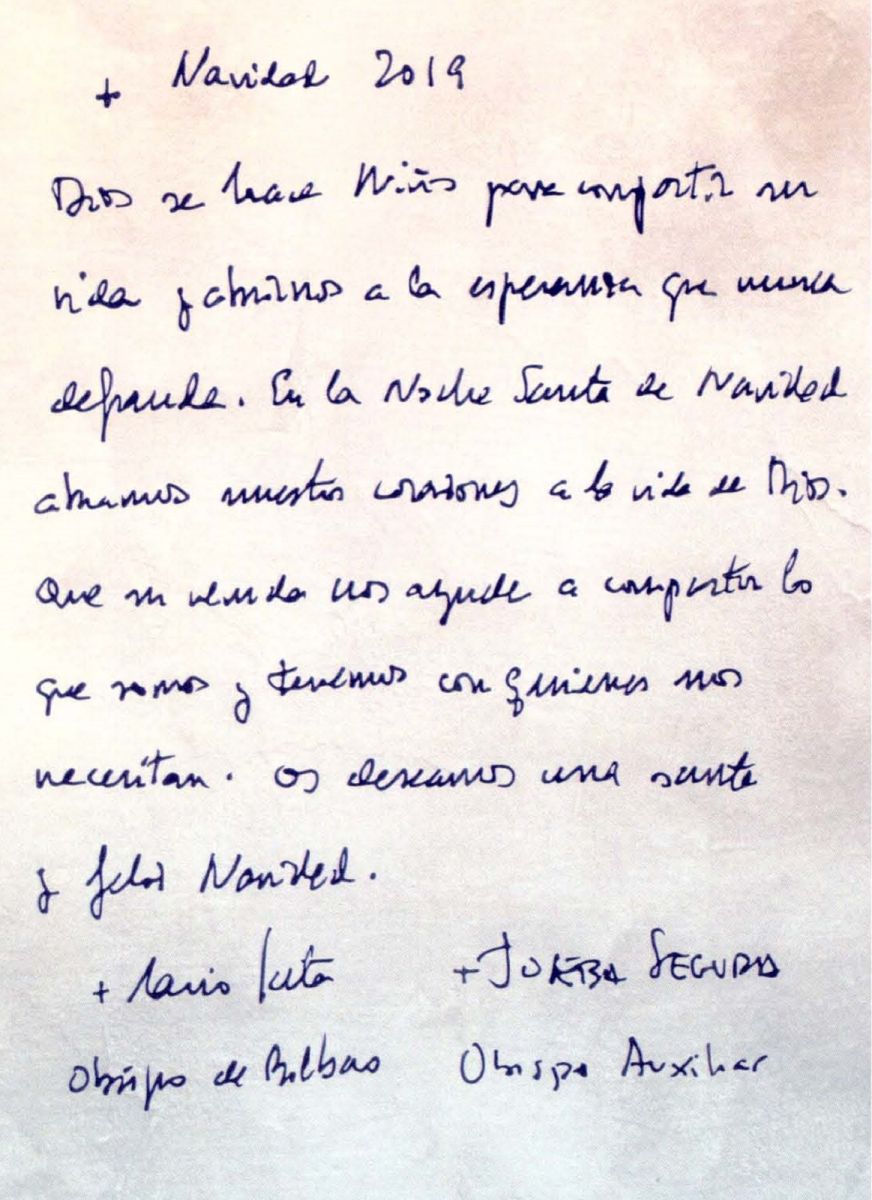 + Navidad 2019
Dios se hace Niño para compartir su
vida y abrirnos a la esperanza que nunca
defrauda. En la Noche Santa de Navidad
abramos nuestros corazones a la vida de Dios.
Que su venida nos ayude a compartir lo
que somos y tenemos con quienes nos
necesitan. Os deseamos una santa
y feliz Navidad.
+ Mario Iceta + JOSEBA SEGURA
Obispo de Bilbao Obispo Auxiliar